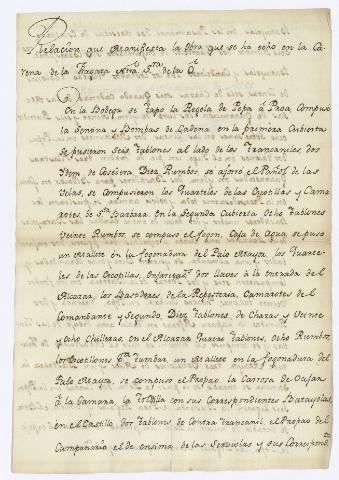 Relacion que Manifiesta la Obra que se ha echo en la Ca-
rena de la fragata Ntra. Sra. de la O
En la Bodega se tapo la Regola de Popa à Proa, Compuso
la y Bombas de Cadena en la primera Cubierta
se pusieron seis tablones al lado de los Trancaniles, dos
Ydem de Cosedera, Diez Rumbos, se aforo el Pañol de las
Velas, se Compusieron los quarteles de las Escotillas y Cama
rotes, de Sta. Barbara. en la Segunda Cubierta ocho tablones
Veinte Rumbos, se compuso el fogon, Caja de Agua, se puso
un Malete en la fogonadura del Palo Mayor, los quarte-
les de las Escotillas, dos llaves à la entrada del
Alcazar, los Bastidores, de la Reposteria, Camarotes del
Comandante y Segundo, Diez tablones, de Chazas, y Veinte
y ocho Chilleras, en el Alcazar quatro tablones, ocho Rumbos,
los Escotillones Pa. tumbar, un Malete en la fogonadura del
Palo Mayor, se compuso el Propao, la Carrosa de vajar
à la Camara, la Toldilla con sus Correspondientes Batayolas,
en el Castillo, dos tablones de Contra trancanil, el Propao del
Campanario, el de ensima de las Serviolas y sus Correspond.tes